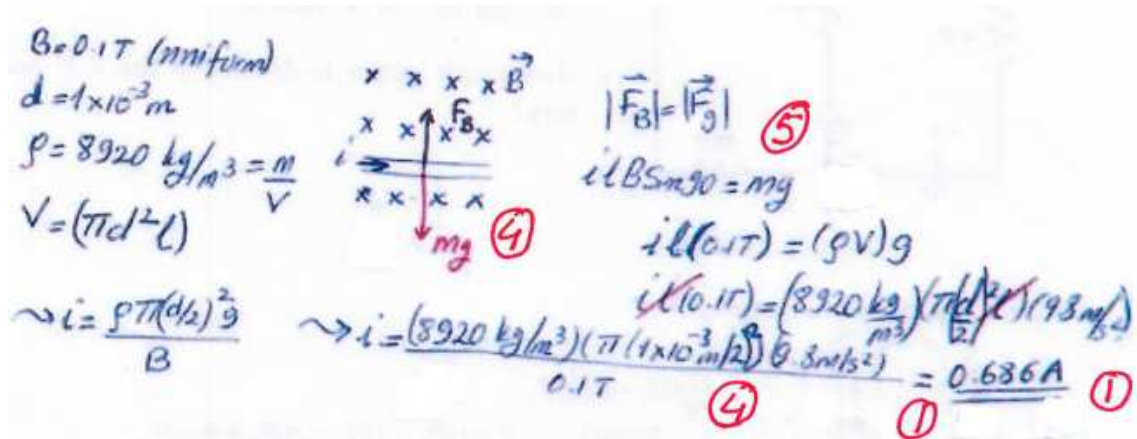 B=0.1T (uniform)
d=1x10^-3 m
ρ=8920 kg/m^3 = m/V
V=(πd^2 l)
x x x x B⃗
x x F_B x x
i
x x x x
mg ④
|F⃗_B|=|F⃗_g| ⑤
ilBSin90=mg
il(0.1T)=(ρV)g
il(0.1T)=(8920 kg/m^3)(π(d/2)^2 l)(9.8 m/s^2)
⤳ i= ρπ(d/2)^2 g / B
⤳ i= (8920 kg/m^3)(π(1x10^-3 m/2)^2)(9.8m/s^2) / 0.1T = 0.686A
④ ① ①